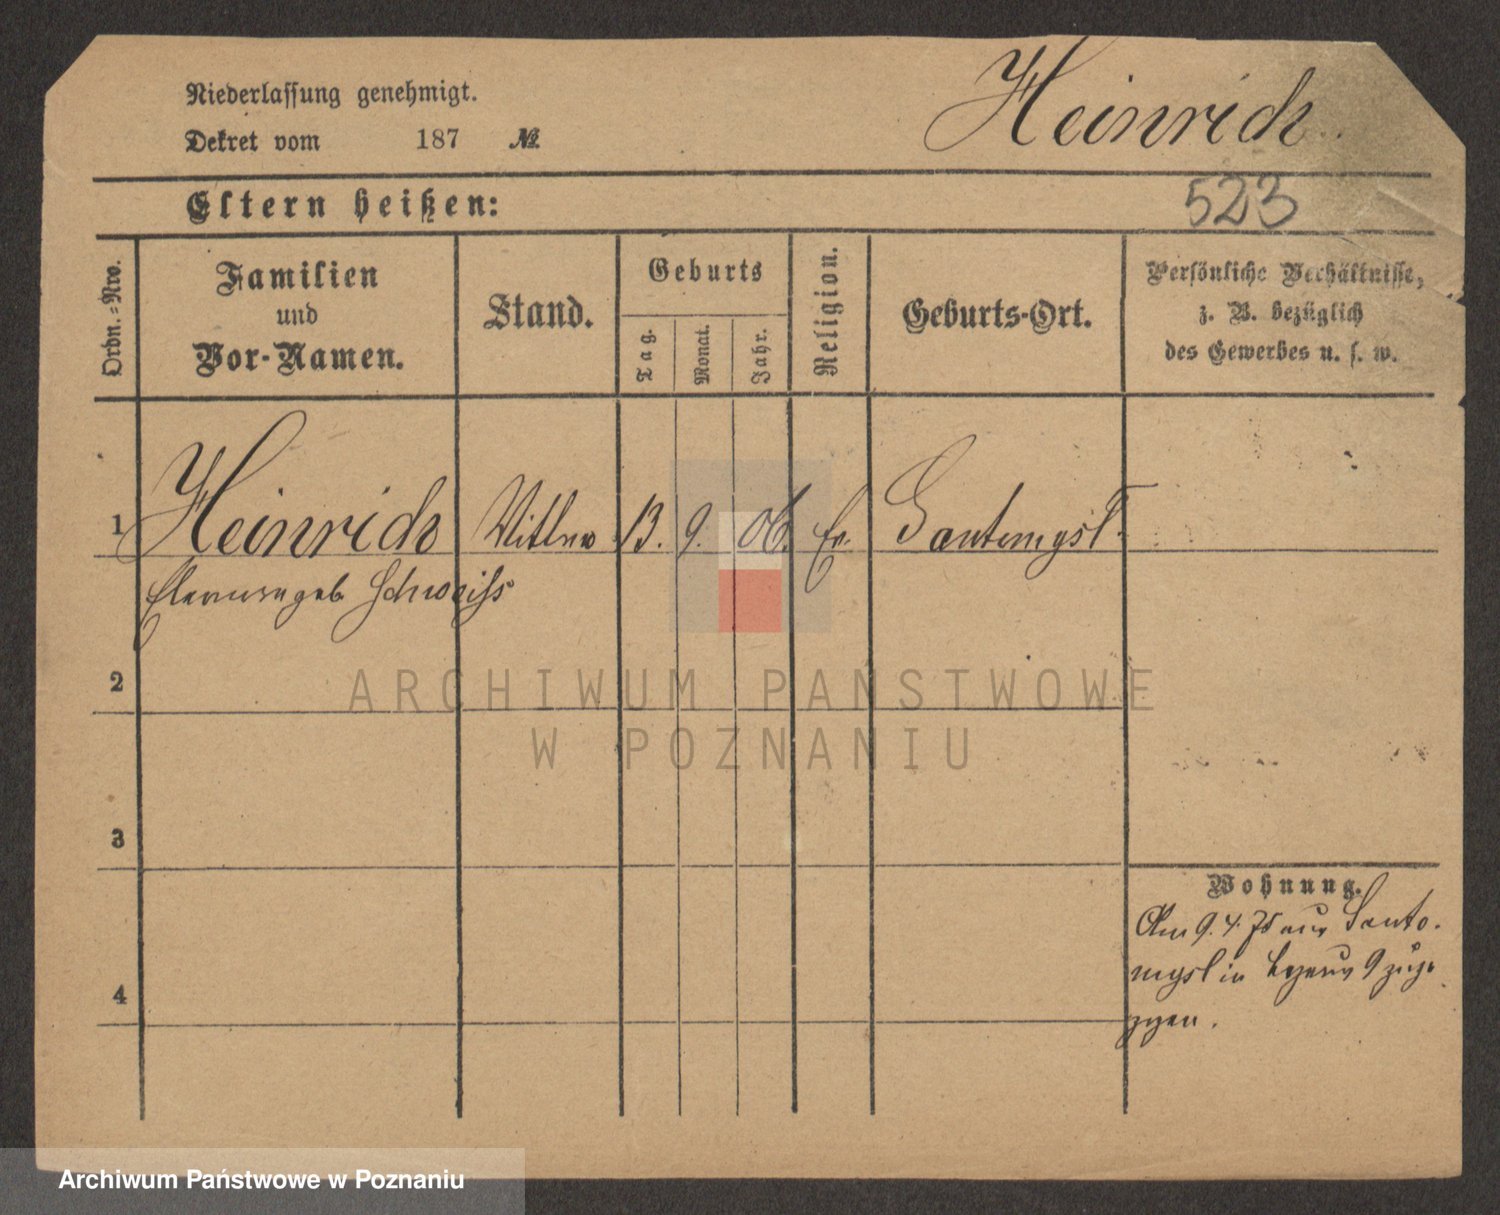 Niederlassung genehmigt.
Dekret vom 187 №
Heinrich
Eltern heißen:
523
Ordn.=Nro.
Familien
und
Vor-Namen.
Stand.
Geburts
Tag.
Monat.
Jahr.
Religion.
Geburts-Ort.
Persönliche Verhältnisse,
z. B. bezüglich
des Gewerbes u. s. w.
1 Heinrich 13. 9. 06. Ev. Santomysl
geb. Schweiss
2
ARCHIWUM PAŃSTWOWE
W POZNANIU
3
Wohnung.
Am 9. 4. 75 aus Santo-
mysl in 9 zuge-
zogen.
4
Archiwum Państwowe w Poznaniu